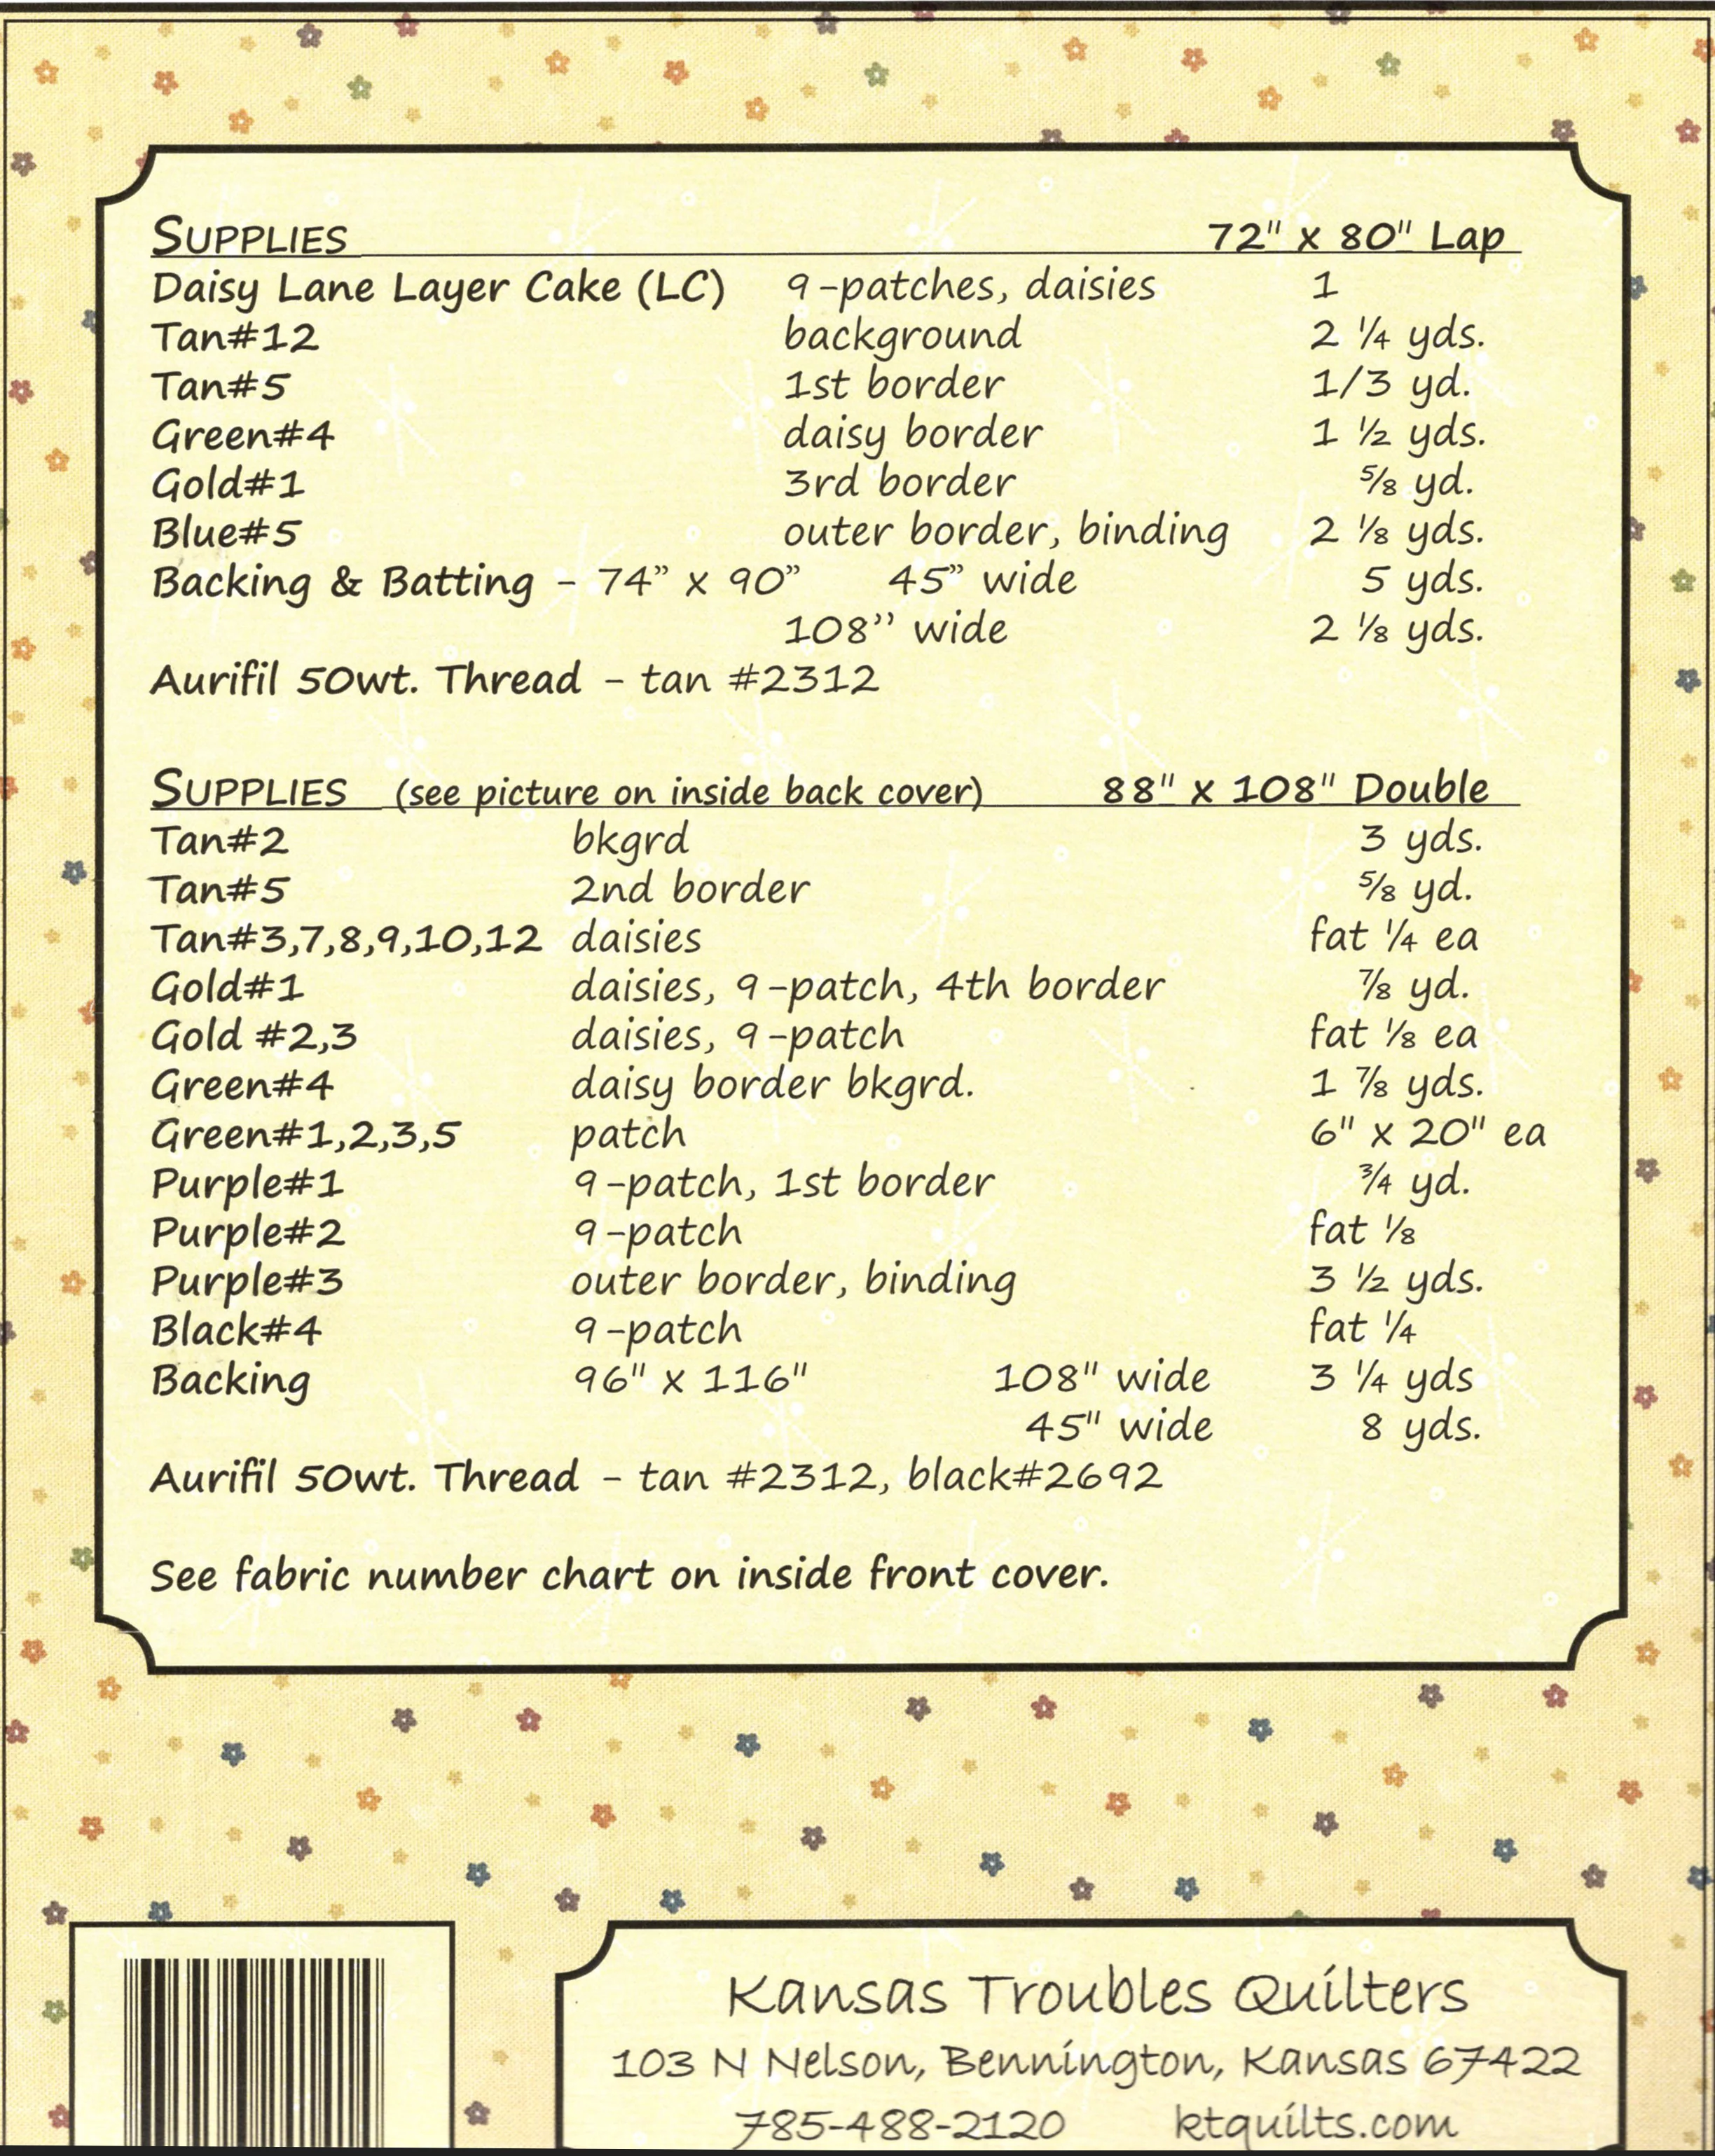 SUPPLIES 72" x 80" Lap
Daisy Lane Layer Cake (LC) 9-patches, daisies 1
Tan#12 background 2 ¼ yds.
Tan#5 1st border 1/3 yd.
Green#4 daisy border 1 ½ yds.
Gold#1 3rd border ⅝ yd.
Blue#5 outer border, binding 2 ⅛ yds.
Backing & Batting - 74” x 90” 45” wide 5 yds.
108’’ wide 2 ⅛ yds.
Aurifil 50wt. Thread - tan #2312
SUPPLIES (see picture on inside back cover) 88" x 108" Double
Tan#2 bkgrd 3 yds.
Tan#5 2nd border ⅝ yd.
Tan#3,7,8,9,10,12 daisies fat ¼ ea
Gold#1 daisies, 9-patch, 4th border ⅞ yd.
Gold #2,3 daisies, 9-patch fat ⅛ ea
Green#4 daisy border bkgrd. 1 ⅞ yds.
Green#1,2,3,5 patch 6" x 20" ea
Purple#1 9-patch, 1st border ¾ yd.
Purple#2 9-patch fat ⅛
Purple#3 outer border, binding 3 ½ yds.
Black#4 9-patch fat ¼
Backing 96" x 116" 108" wide 3 ¼ yds
45" wide 8 yds.
Aurifil 50wt. Thread - tan #2312, black#2692
See fabric number chart on inside front cover.
Kansas Troubles Quilters
103 N Nelson, Bennington, Kansas 67422
785-488-2120 ktquilts.com